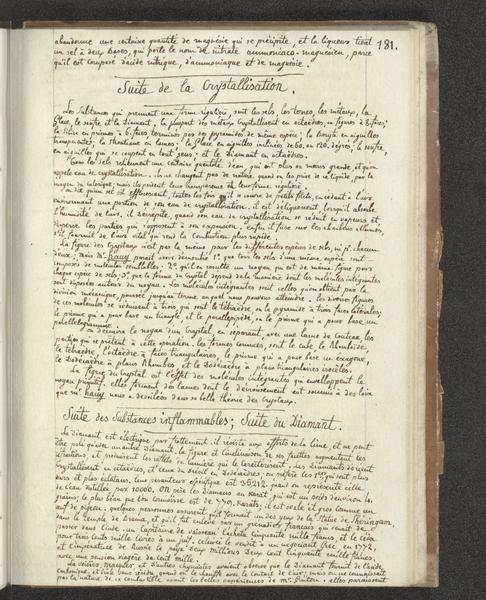 181.
abandonne une certaine quantité de magnésie qui se précipite, et la liqueur tient
un sel à deux bases, qui porte le nom de nitrate ammoniaco-magnésien, parce
qu'il est composé d'acide nitrique, d'ammoniaque et de magnésie.
Suite de la Crystallisation.
Les substances qui prennent une forme régulière, sont les sels, les terres, les métaux, la
glace, le soufre et le diamant. la plupart des métaux crystallisent en octaèdres, ou figures à 8 faces;
la silice en prismes à 6 faces, terminés par des pyramides de même espèce; la Baryte en aiguilles
transparentes; la Strontiane en lames; la glace en aiguilles inclinées de 60, ou 120, degrés; le soufre
en aiguilles qui se coupent en tout sens; et le Diamant en octaèdres.
Tous les sels retiennent une certaine quantité d'eau, qui est plus ou moins grande, et qu'on
appelle eau de crystallisation. ils ne changent pas de nature quand on les prive de ce liquide, par le
moyen du calorique; mais ils perdent leur transparence et leur forme régulière.
on dit qu'un sel est efflorescent, toutes les fois qu'il se couvre de petits filets, en cédant à l'air
environnant une portion de son eau de crystallisation. il est déliquescent lorsqu'il absorbe
l'humidité de l'air. il décrépite, quand son eau de crystallisation se réduit en vapeurs et
disperse les parties qui s'opposent à son expansion. enfin il fuse sur les charbons allumés,
s'il fournit de l'air vital qui rend la combustion plus rapide.
La figure des Crystaux n'est pas la même pour les différentes espèces de sels, ni pr. chacun
d'eux; mais Mr. haüy paroît avoir démontré 1°. que tous les sels d'une même espèce sont
composés de molécules semblables; 2°. qu'il en résulte un noyau, qui est de même figure pour
chaque espèce de sels; 3°. que la forme du Crystal dépend de la manière dont les molécules intégrantes
sont disposées autour du noyau. Les molécules intégrantes sont celles qu'on obtient par la
division mécanique, poussée jusqu'au terme auquel nous pouvons atteindre. les diverses figures
de ces molécules se réduisent à trois qui sont le tétraèdre, ou la pyramide à trois faces latérales;
le prisme qui a pour base un triangle, et le parallélipipède, ou le prisme qui a pour base un
parallelogramme.
On découvre le noyau d'un crystal, en séparant, avec une lame de couteau, les
parties qui se prêtent à cette opération. les formes connues, sont le cube, le Rhomboïde,
le tétraèdre, l'octaèdre à faces triangulaires, le prisme qui a pour base un exagone,
le Dodécaèdre à plans Rhombes, et le Dodécaèdre à plans triangulaires isocèles.
La figure du Crystal est l'effet des molécules intégrantes qui enveloppent le
noyau primitif. elles forment des lames dont le décroissement est soumis à des loix
que Mr. haüy nous a dévoilées dans sa belle théorie des Crystaux.
Suite des Substances inflammables; Suite du Diamant.
Le diamant est électrique par frottement. il résiste aux efforts de la lime, et ne peut
être poli qu'avec un autre diamant. la figure et l'inclinaison de ses facettes augmentent les
réfractions, et produisent les reflets de lumière qui le caractérisent. Les diamants d'orient
crystallisent en octaèdres, et ceux du Brésil en dodécaèdres, on préfère les 1ers. qui sont plus
durs et plus éclatans. leur pesanteur spécifique est 35212. quand on représente celle
de l'eau distillée par 10000. On pèse les diamans au Karat, qui est un poids d'environ 4.
grains; le plus beau que l'on connoisse est de 779. Karats; il est ovale et gros comme un
œuf de pigeon. quelques personnes assurent, qu'il formait un des yeux de la Statue de Scheringam,
dans le temple de Brama, et qu'il fut enlevé par un grenadier français qui venait de
passer dans l'inde. un capitaine de vaisseau l'acheta cinquante mille francs, et le céda
pour trois cents mille livres à un juif. celui-ci le vendit à un négociant Grec. en 1772,
et l'impératrice de Russie le paya deux millions Deux cent cinquante mille francs,
avec une pension viagère de cent mille.
Lavoisier, Macquer et d'autres chymistes avaient observé que le diamant fournit de l'acide
carbonique, et n'est sans résidu, quand on le chauffe avec le contact de l'air; mais on ne connaissait
pas la nature de ce combustible avant les belles expériences de Mr. Guiton. elles paraissent